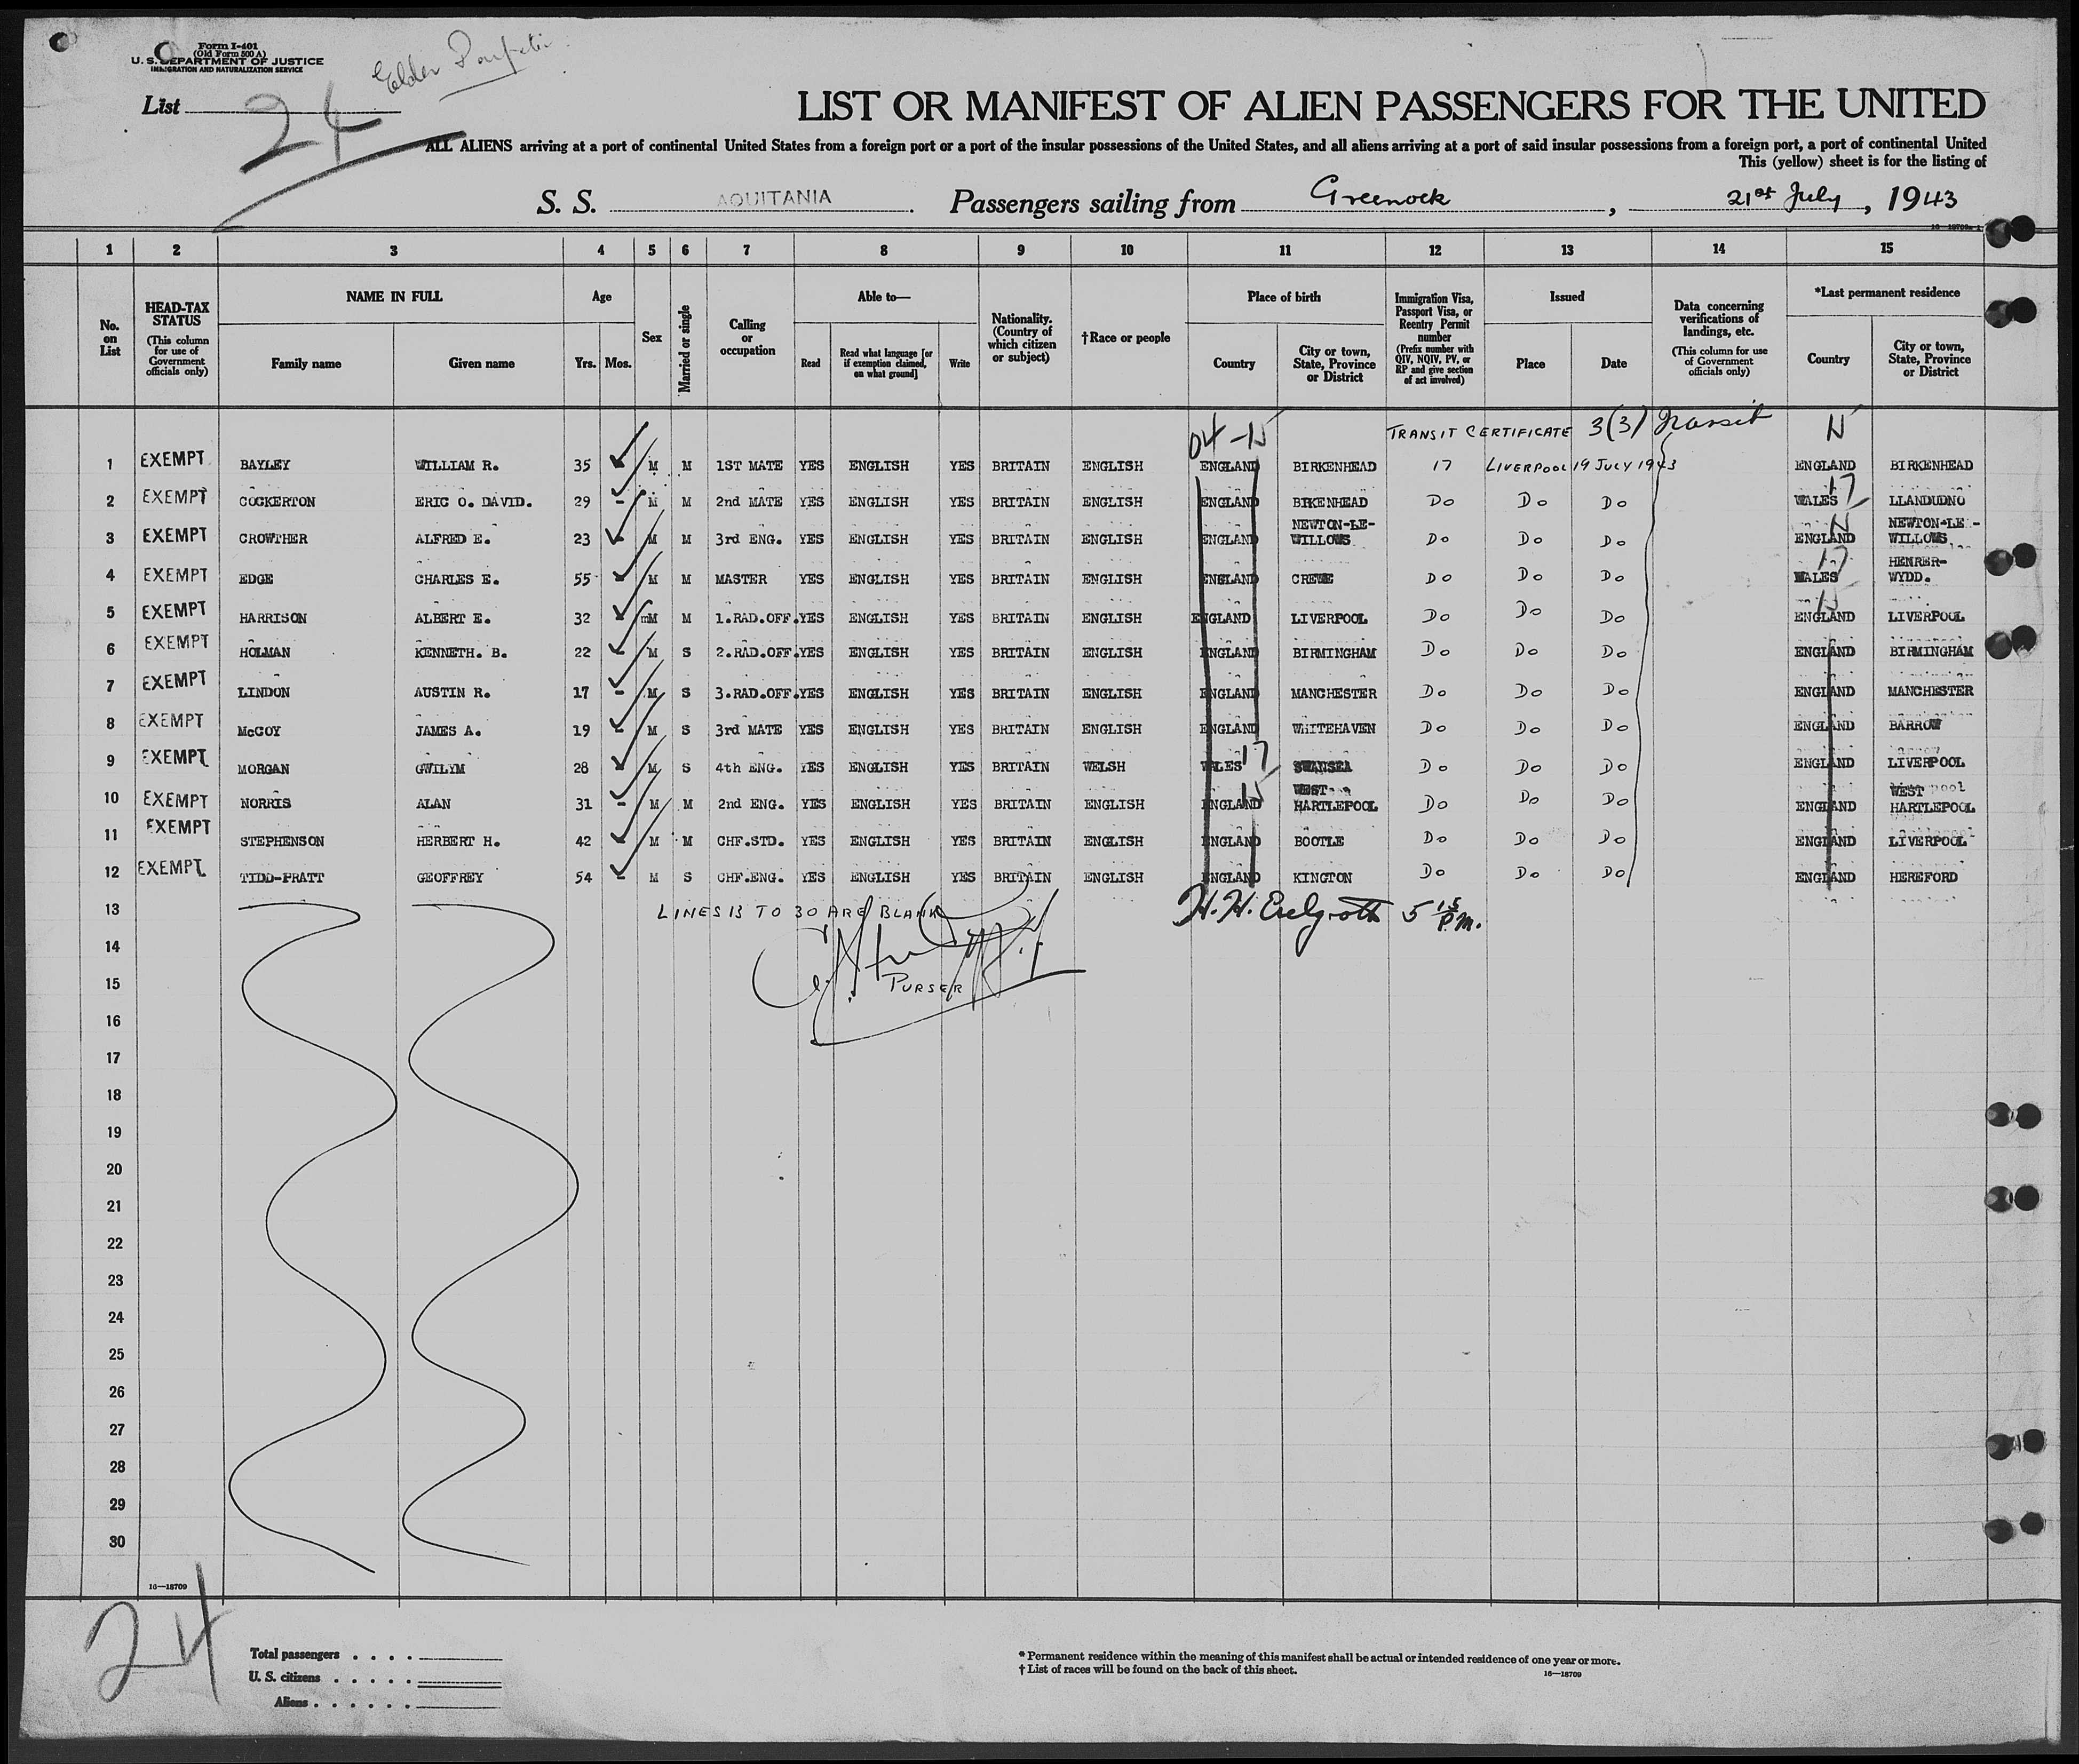 Form I-401
(Old Form 500 A)
U. S. DEPARTMENT OF JUSTICE
IMMIGRATION AND NATURALIZATION SERVICE
Elder
List 24
LIST OR MANIFEST OF ALIEN PASSENGERS FOR THE UNITED
ALL ALIENS arriving at a port of continental United States from a foreign port or a port of the insular possessions of the United States, and all aliens arriving at a port of said insular possessions from a foreign port, a port of continental United
This (yellow) sheet is for the listing of
S. S. AQUITANIA. Passengers sailing from Greenock, 21st July, 1943
1 2 3 4 5 6 7 8 9 10 11 12 13 14 15
No. on List
HEAD-TAX STATUS (This column for use of Government officials only)
NAME IN FULL Family name Given name
Age Yrs. Mos.
Sex
Married or single
Calling or occupation
Able to— Read Read what language [or if exemption claimed, on what ground] Write
Nationality. (Country of which citizen or subject)
†Race or people
Place of birth Country City or town, State, Province or District
Immigration Visa, Passport Visa, or Reentry Permit number (Prefix number with QIV, NQIV, PV, or RP and give section of act involved)
Issued Place Date
Data concerning verifications of landings, etc. (This column for use of Government officials only)
*Last permanent residence Country City or town, State, Province or District
TRANSIT CERTIFICATE 3(3) Transit
1 EXEMPT BAYLEY WILLIAM R. 35 M M 1ST MATE YES ENGLISH YES BRITAIN ENGLISH ENGLAND BIRKENHEAD 17 LIVERPOOL 19 JULY 1943 ENGLAND BIRKENHEAD
2 EXEMPT COCKERTON ERIC O. DAVID. 29 - M M 2nd MATE YES ENGLISH YES BRITAIN ENGLISH ENGLAND BIKENHEAD Do Do Do WALES 17 LLANDUDNO
3 EXEMPT CROWTHER ALFRED E. 23 M M 3rd ENG. YES ENGLISH YES BRITAIN ENGLISH ENGLAND NEWTON-LE-WILLOWS Do Do Do ENGLAND NEWTON-LE-WILLOWS
4 EXEMPT EDGE CHARLES E. 55 M M MASTER YES ENGLISH YES BRITAIN ENGLISH ENGLAND CREWE Do Do Do WALES 17 HENRER-WYDD.
5 EXEMPT HARRISON ALBERT E. 32 mM M 1.RAD.OFF. YES ENGLISH YES BRITAIN ENGLISH ENGLAND LIVERPOOL Do Do Do ENGLAND LIVERPOOL
6 EXEMPT HOLMAN KENNETH. B. 22 M S 2.RAD.OFF. YES ENGLISH YES BRITAIN ENGLISH ENGLAND BIRMINGHAM Do Do Do ENGLAND BIRMINGHAM
7 EXEMPT LINDON AUSTIN R. 17 - M S 3.RAD.OFF. YES ENGLISH YES BRITAIN ENGLISH ENGLAND MANCHESTER Do Do Do ENGLAND MANCHESTER
8 EXEMPT McCOY JAMES A. 19 M S 3rd MATE YES ENGLISH YES BRITAIN ENGLISH ENGLAND WHITEHAVEN Do Do Do ENGLAND BARROW
9 EXEMPT MORGAN GWILYM 28 M S 4th ENG. YES ENGLISH YES BRITAIN WELSH WALES 17 SWANSEA Do Do Do ENGLAND LIVERPOOL
10 EXEMPT NORRIS ALAN 31 - M M 2nd ENG. YES ENGLISH YES BRITAIN ENGLISH ENGLAND WEST HARTLEPOOL Do Do Do ENGLAND WEST HARTLEPOOL
11 EXEMPT STEPHENSON HERBERT H. 42 M M CHF.STD. YES ENGLISH YES BRITAIN ENGLISH ENGLAND BOOTLE Do Do Do ENGLAND LIVERPOOL
12 EXEMPT TIDD-PRATT GEOFFREY 54 - M S CHF.ENG. YES ENGLISH YES BRITAIN ENGLISH ENGLAND KINGTON Do Do Do ENGLAND HEREFORD
13 LINES 13 TO 30 ARE BLANK H. H. 5 15 P.M.
14
15 PURSER
16
17
18
19
20
21
22
23
24
25
26
27
28
29
30
16—18709
24
Total passengers
U. S. citizens
Aliens
* Permanent residence within the meaning of this manifest shall be actual or intended residence of one year or more.
† List of races will be found on the back of this sheet.
16—18709